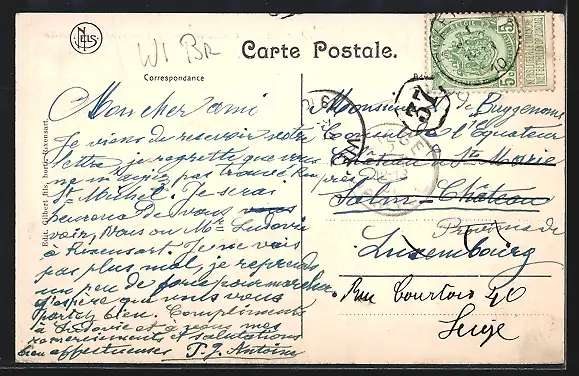 NELS
W1 BR
Carte Postale.
Correspondance
Edit. Gilbert fils, hortic. Rixensart.
Mon cher ami
Je viens de recevoir votre
lettre, je regrette que vous
ne m'ayiez pas trouvé
St Michel. Je serai
heureux de vous
voir, vous ou Mr Ludovic
à Rixensart. Je ne vais
pas plus mal, je reprends
un peu de force pour marcher.
J'espère que vous vous
portez bien. Compliments
à Ludovic et à vous mes
remerciements et salutations
bien affectueuses P. J. Antoine
Monsieur J. de Buggenoms
Consul de l'Equateur
Château de Ste Marie
près de
Salm-Château
Province de
Luxembourg
Rue Courtois 40
Liège
37
5c 5c